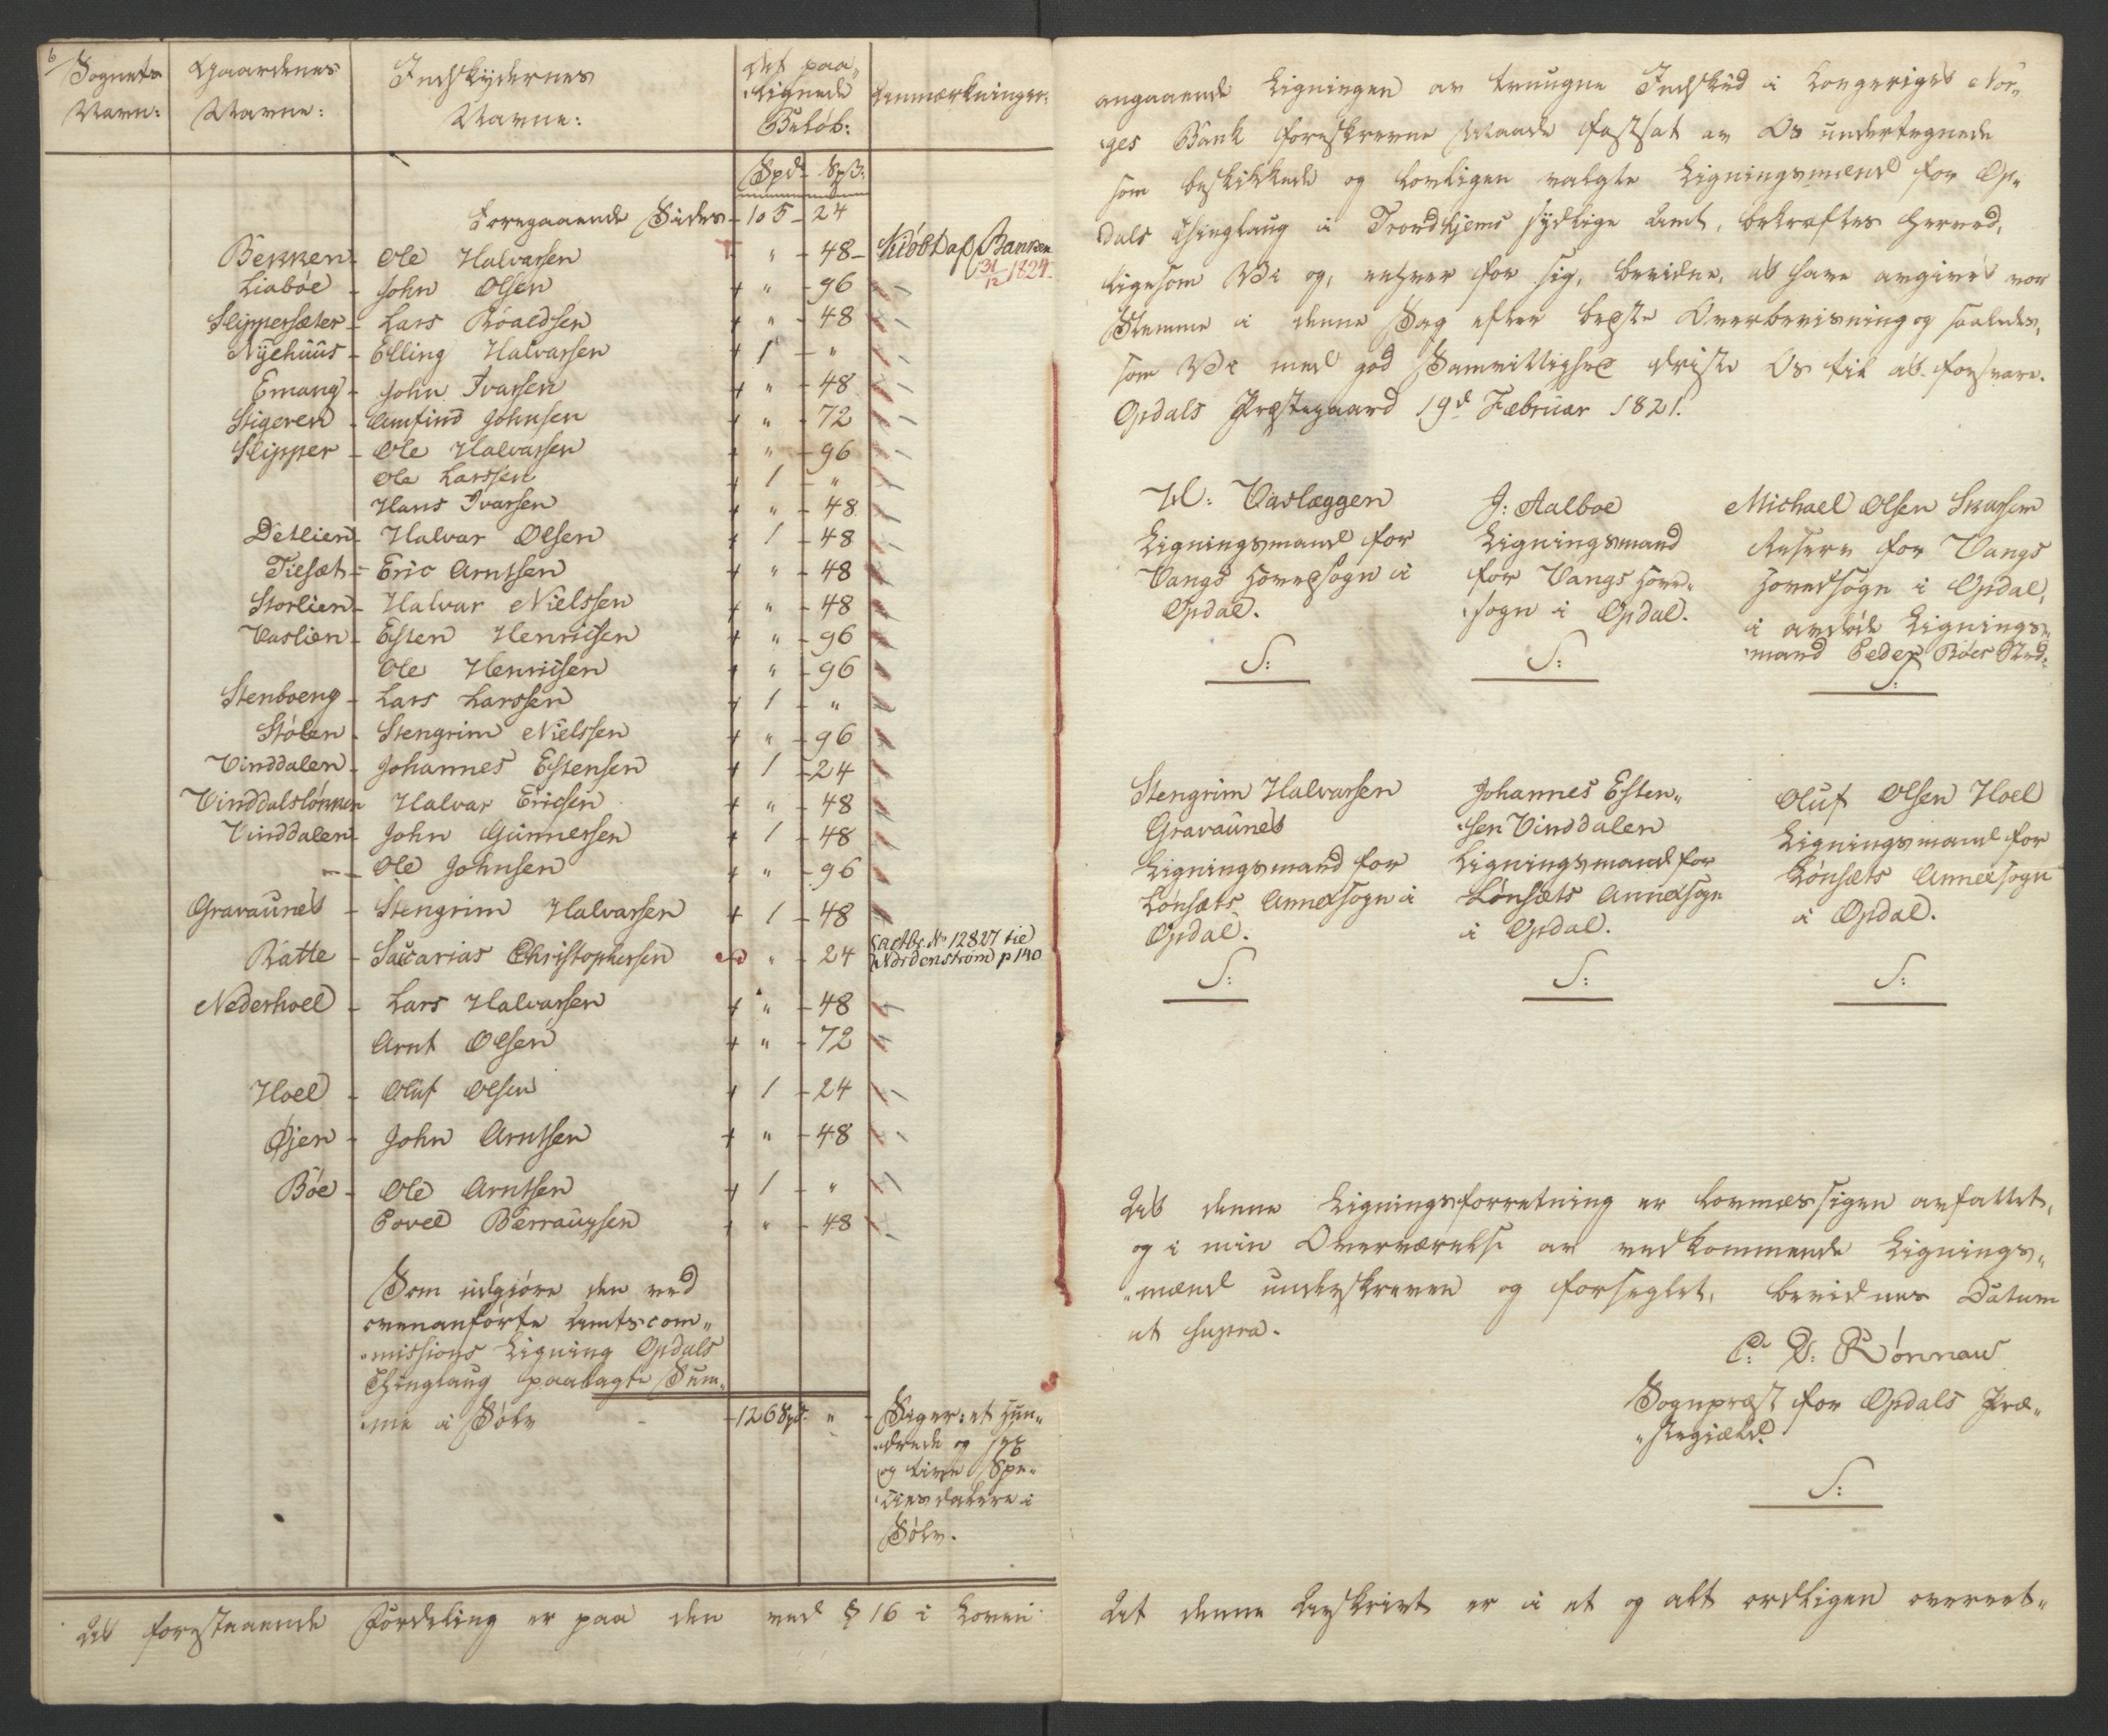 6
Sognets Navn: Gaardenes Navne: Indskydernes Navne: Det paa„lignede Beløb: Anmærkninger:
Spd. Spß:
Foregaaende Sides - 105 - 24
Bekken - Ole Halvarsen " - 48 - Kiøbt af Banken 31/12 1824.
Liabøe - John Olsen + " - 96
Slippersæter - Lars Roaldsen + " - 48
Nyehuus - Elling Halvarsen + 1 - "
Emang - John Ivarsen + " - 48
Stigeren - Amfind Johnsen + " - 72
Slipper - Ole Halvarsen + " - 96
Ole Larssen + 1 - "
Hans Ivarsen + " - 48
Detlien - Halvar Olsen + 1 - 48
Tilset - Eric Arntsen + " - 48
Storlien - Halvar Nielssen + " - 48
Vaslien - Esten Henricsen + " - 96
Ole Henricsen + " - 96
Stenboeng - Lars Larssen + 1 - "
Stølen - Stengrim Nielssen + " - 96
Vinddalen - Johannes Estensen + 1 - 24
Vinddalsløkken Halvar Ericsen + " - 48
Vinddalen - John Gunnersen + 1 - 48
— Ole Johnsen + " - 96
Gravaunet - Stengrim Halvarsen + 1 - 48
Ratte - Saccarias Christophersen " - 24 No 12827 til Nordenstrøm p 140
Nederhoel - Lars Halvarsen + " - 48
Arnt Olsen + " - 72
Hoel - Oluf Olsen + 1 - 24
Øjen - John Arntsen + " - 48
Bøe - Ole Arntsen + 1 - "
Povel Berraugsen + " - 48
Som udgiøre den ved
ovenanførte Amtscom„
„missions Ligning Opdals
Thinglaug paalagte Sum„
„me i Sølv - 126 Spd. " - Siger: et Hun„
„drede og sex
og tive Spe„
„ciesdalere i
Sølv.
At forestaaende Fordeling er paa den ved § 16 i Loven
angaaende Ligningen av tvungne Indskud i Kongeriget Nor„
„ges Bank foreskrevne Maade fastsat av Os undertegnede
som beskikkede og lovligen valgte Ligningsmænd for Op„
dals Thinglaug i Trondhjems sydlige Amt, bekræftes herved,
ligesom Vi og, enhver for sig, bevidne, at have avgivet vor
Stemme i denne Sag efter bedste Overbeviisning og saaledes,
som Vi med god Samvittighed driste Os til at forsvare.
Opdals Præstegaard 19d Februar 1821.
Vaslæggen
Ligningsmand for
Vangs Hovedsogn i
Opdal.
S:
J: Aalboe
Ligningsmand
for Vangs Hoved„
„sogn i Opdal.
S:
Michael Olsen
Reserve for Vangs
Hovedsogn i Opdal,
i avdøde Lignings„
„mand Peder Sted.
S:
Stengrim Halvarsen
Gravaunet
Ligningsmand for
Lønsæts Annexsogn i
Opdal.
S:
Johannes Esten„
„sen Vinddalen
Ligningsmand for
Lønsæts Annexsogn
i Opdal.
S:
Oluf Olsen Hoel
Ligningsmand for
Lønsæts Annexsogn
i Opdal.
S:
At denne Ligningsforretning er lovmæssigen avfattet,
og i min Overværelse av vedkommende Lignings„
„mænd underskreven og forseglet, bevidnes Datum
ut supra.
Rønnau
Sognpræst for Opdals Præ„
„stegield.
S:
At denne Avskrivt er i et og alt ordligen overeet„